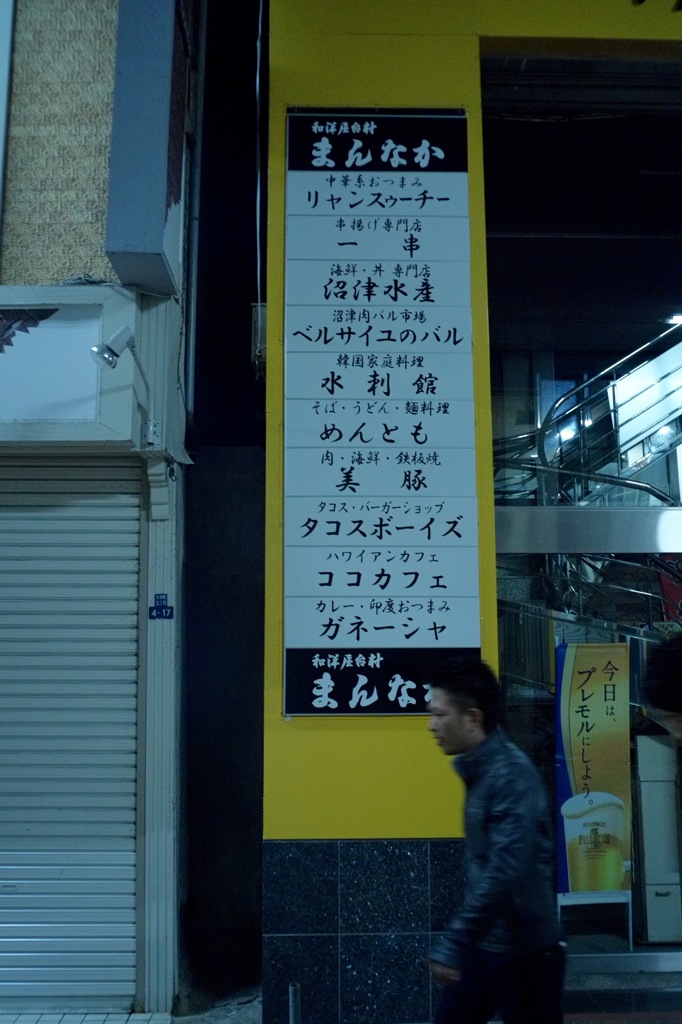 和洋屋台村
まんなか
中華系おつまみ
リャンスゥーチー
串揚げ専門店
一 串
海鮮・丼 専門店
沼津水産
沼津肉バル市場
ベルサイユのバル
韓国家庭料理
水 刺 館
そば・うどん・麺料理
めんとも
肉・海鮮・鉄板焼
美 豚
タコス・バーガーショップ
タコスボーイズ
ハワイアンカフェ
ココカフェ
カレー・印度おつまみ
ガネーシャ
和洋屋台村
まんなか
4-17
今日は、
プレモルにしよう。